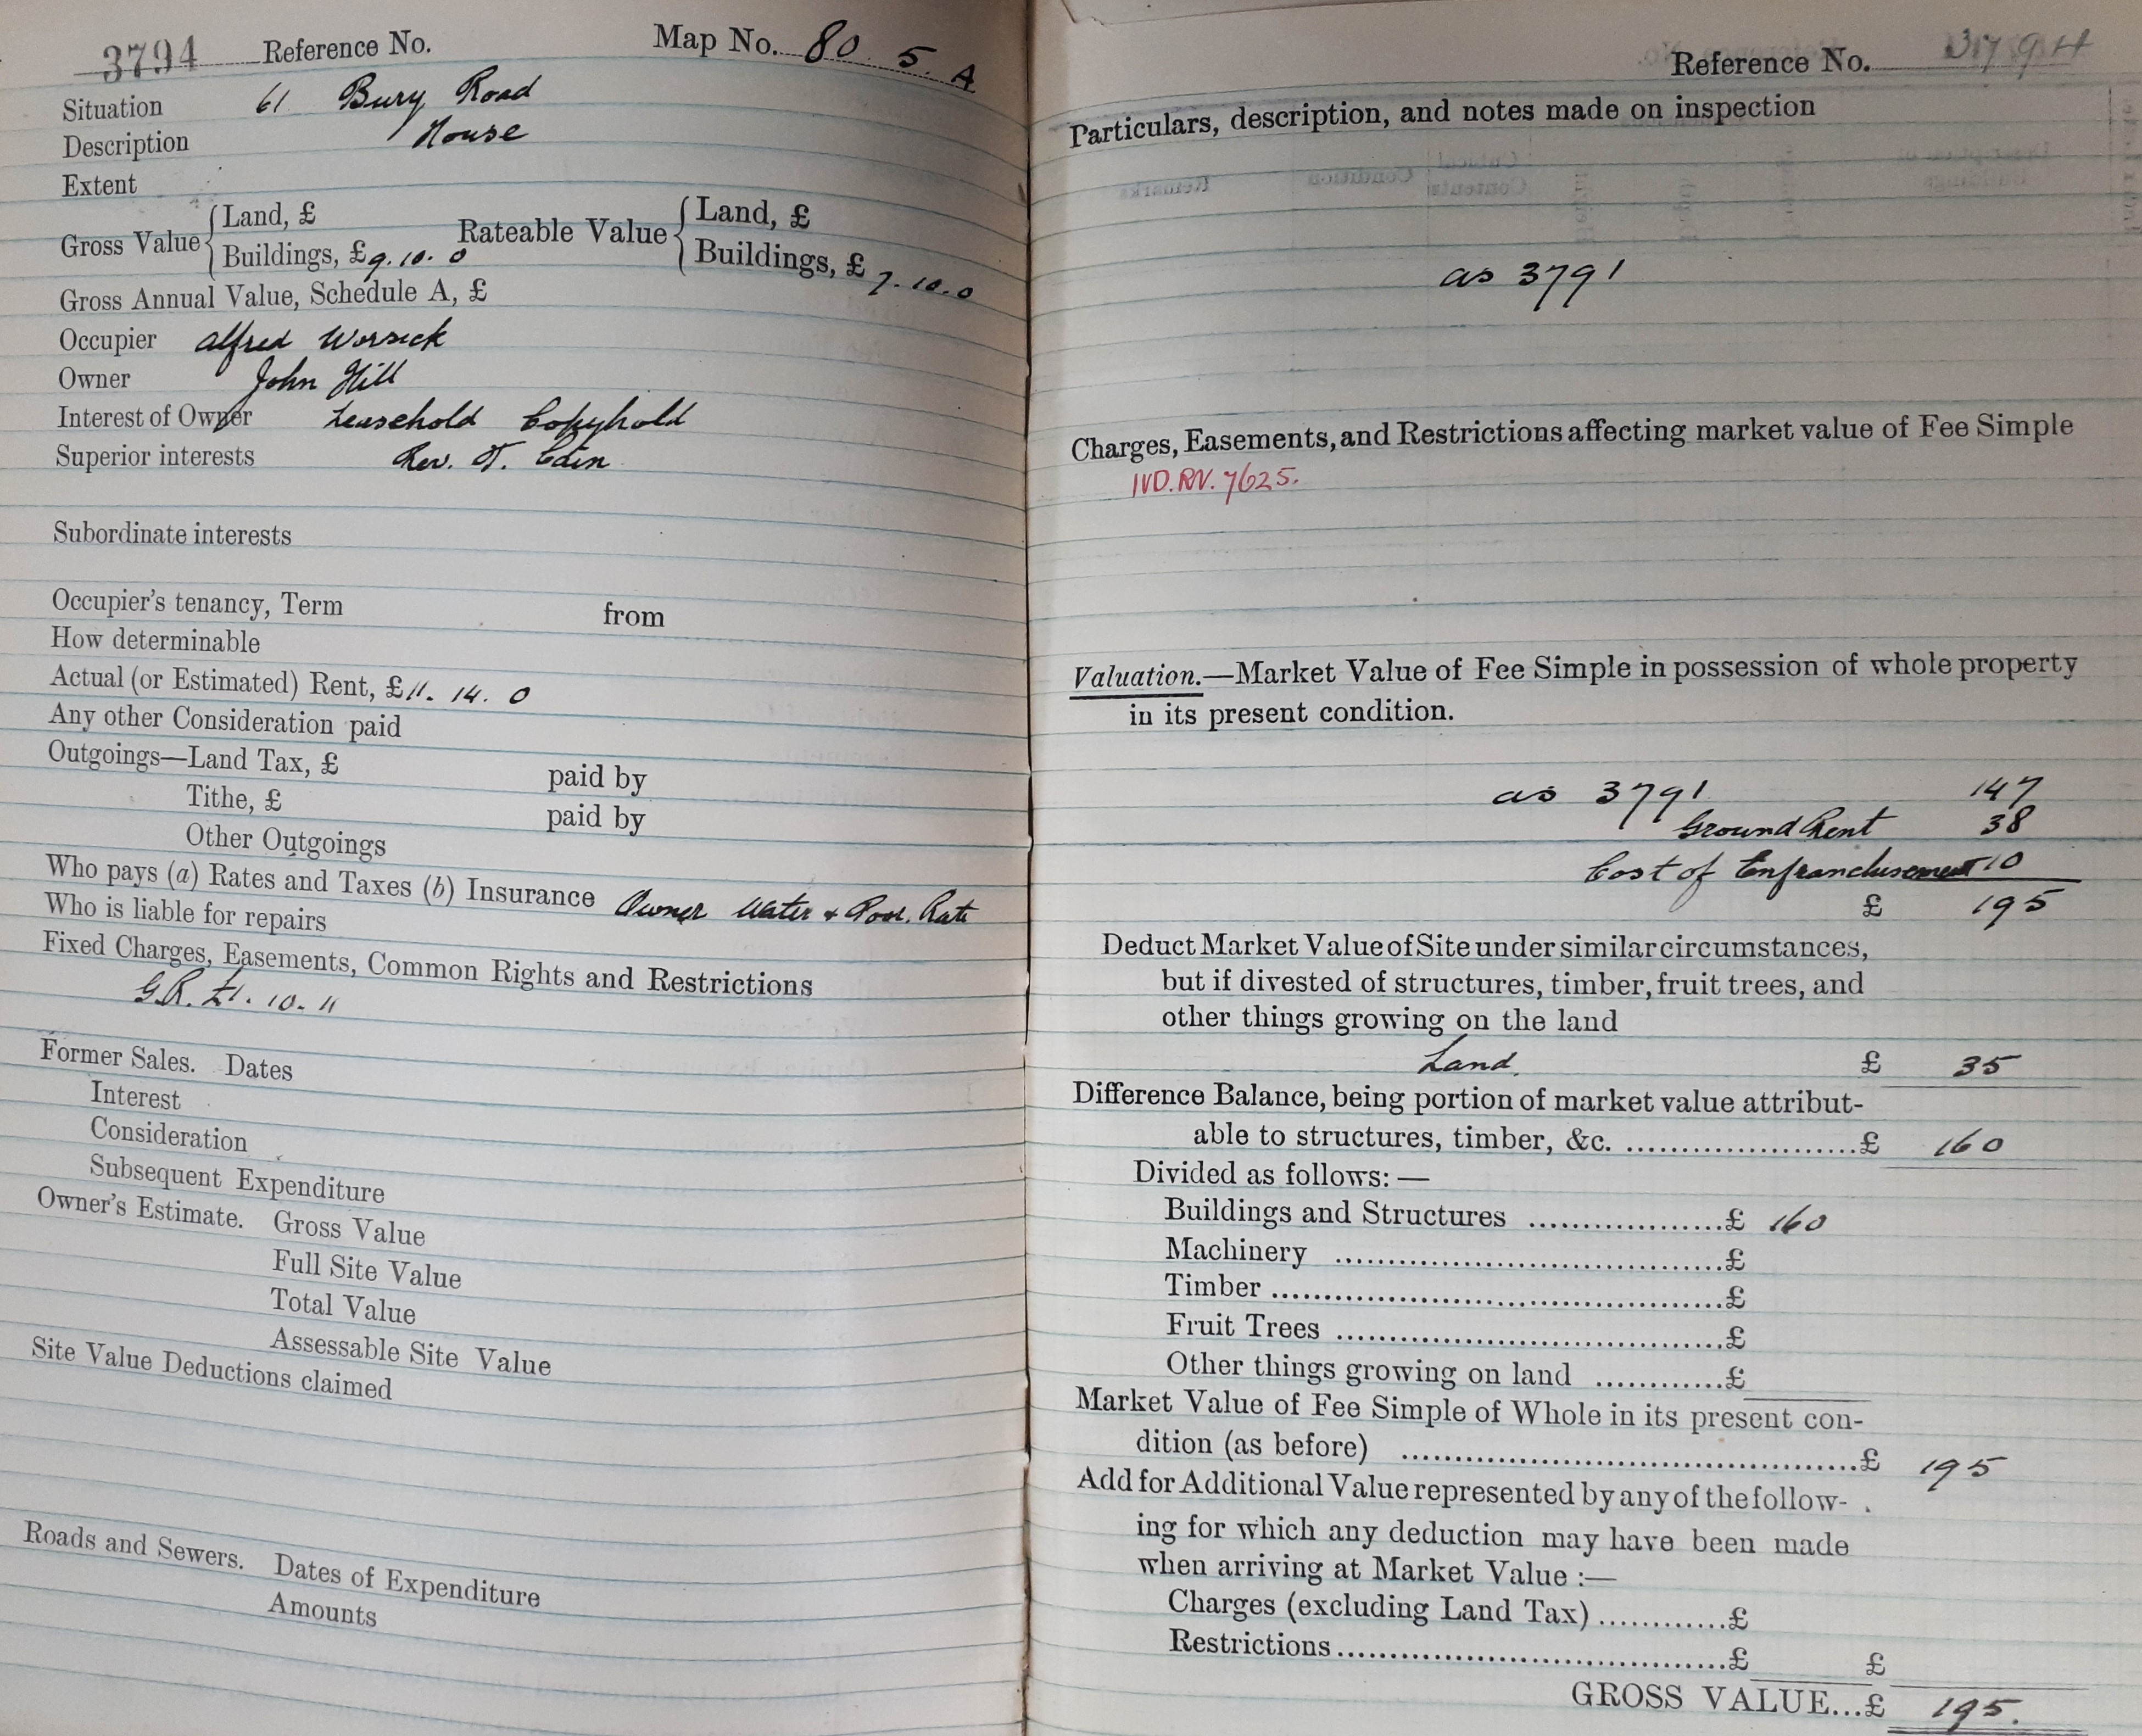 3794 Reference No. Map No. 80 5. A
Situation 61 Bury Road
Description House
Extent
Gross Value { Land, £
Buildings, £ 9. 10. 0
Rateable Value { Land, £
Buildings, £ 7. 10. 0
Gross Annual Value, Schedule A, £
Occupier Alfred Worsick
Owner John Hill
Interest of Owner Leasehold Copyhold
Superior interests Rev. T. Edin
Subordinate interests
Occupier's tenancy, Term from
How determinable
Actual (or Estimated) Rent, £ 11. 14. 0
Any other Consideration paid
Outgoings—Land Tax, £ paid by
Tithe, £ paid by
Other Outgoings
Who pays (a) Rates and Taxes (b) Insurance Owner Water + Poor Rate
Who is liable for repairs
Fixed Charges, Easements, Common Rights and Restrictions
G.R. £1. 10. 11
Former Sales. Dates
Interest
Consideration
Subsequent Expenditure
Owner's Estimate. Gross Value
Full Site Value
Total Value
Assessable Site Value
Site Value Deductions claimed
Roads and Sewers. Dates of Expenditure
Amounts
Reference No. 3794
Particulars, description, and notes made on inspection
as 3791
Charges, Easements, and Restrictions affecting market value of Fee Simple
IVD. RV. 7625.
Valuation.—Market Value of Fee Simple in possession of whole property
in its present condition.
as 3791 147
Ground Rent 38
Cost of Enfranchisement 10
£ 195
Deduct Market Value of Site under similar circumstances,
but if divested of structures, timber, fruit trees, and
other things growing on the land
Land. £ 35
Difference Balance, being portion of market value attribut-
able to structures, timber, &c. ......................£ 160
Divided as follows: —
Buildings and Structures ....................£ 160
Machinery ....................£
Timber ....................£
Fruit Trees ....................£
Other things growing on land ............£
Market Value of Fee Simple of Whole in its present con-
dition (as before) ....................£ 195
Add for Additional Value represented by any of the follow-
ing for which any deduction may have been made
when arriving at Market Value :—
Charges (excluding Land Tax) ............£
Restrictions ....................£ £
GROSS VALUE...£ 195.